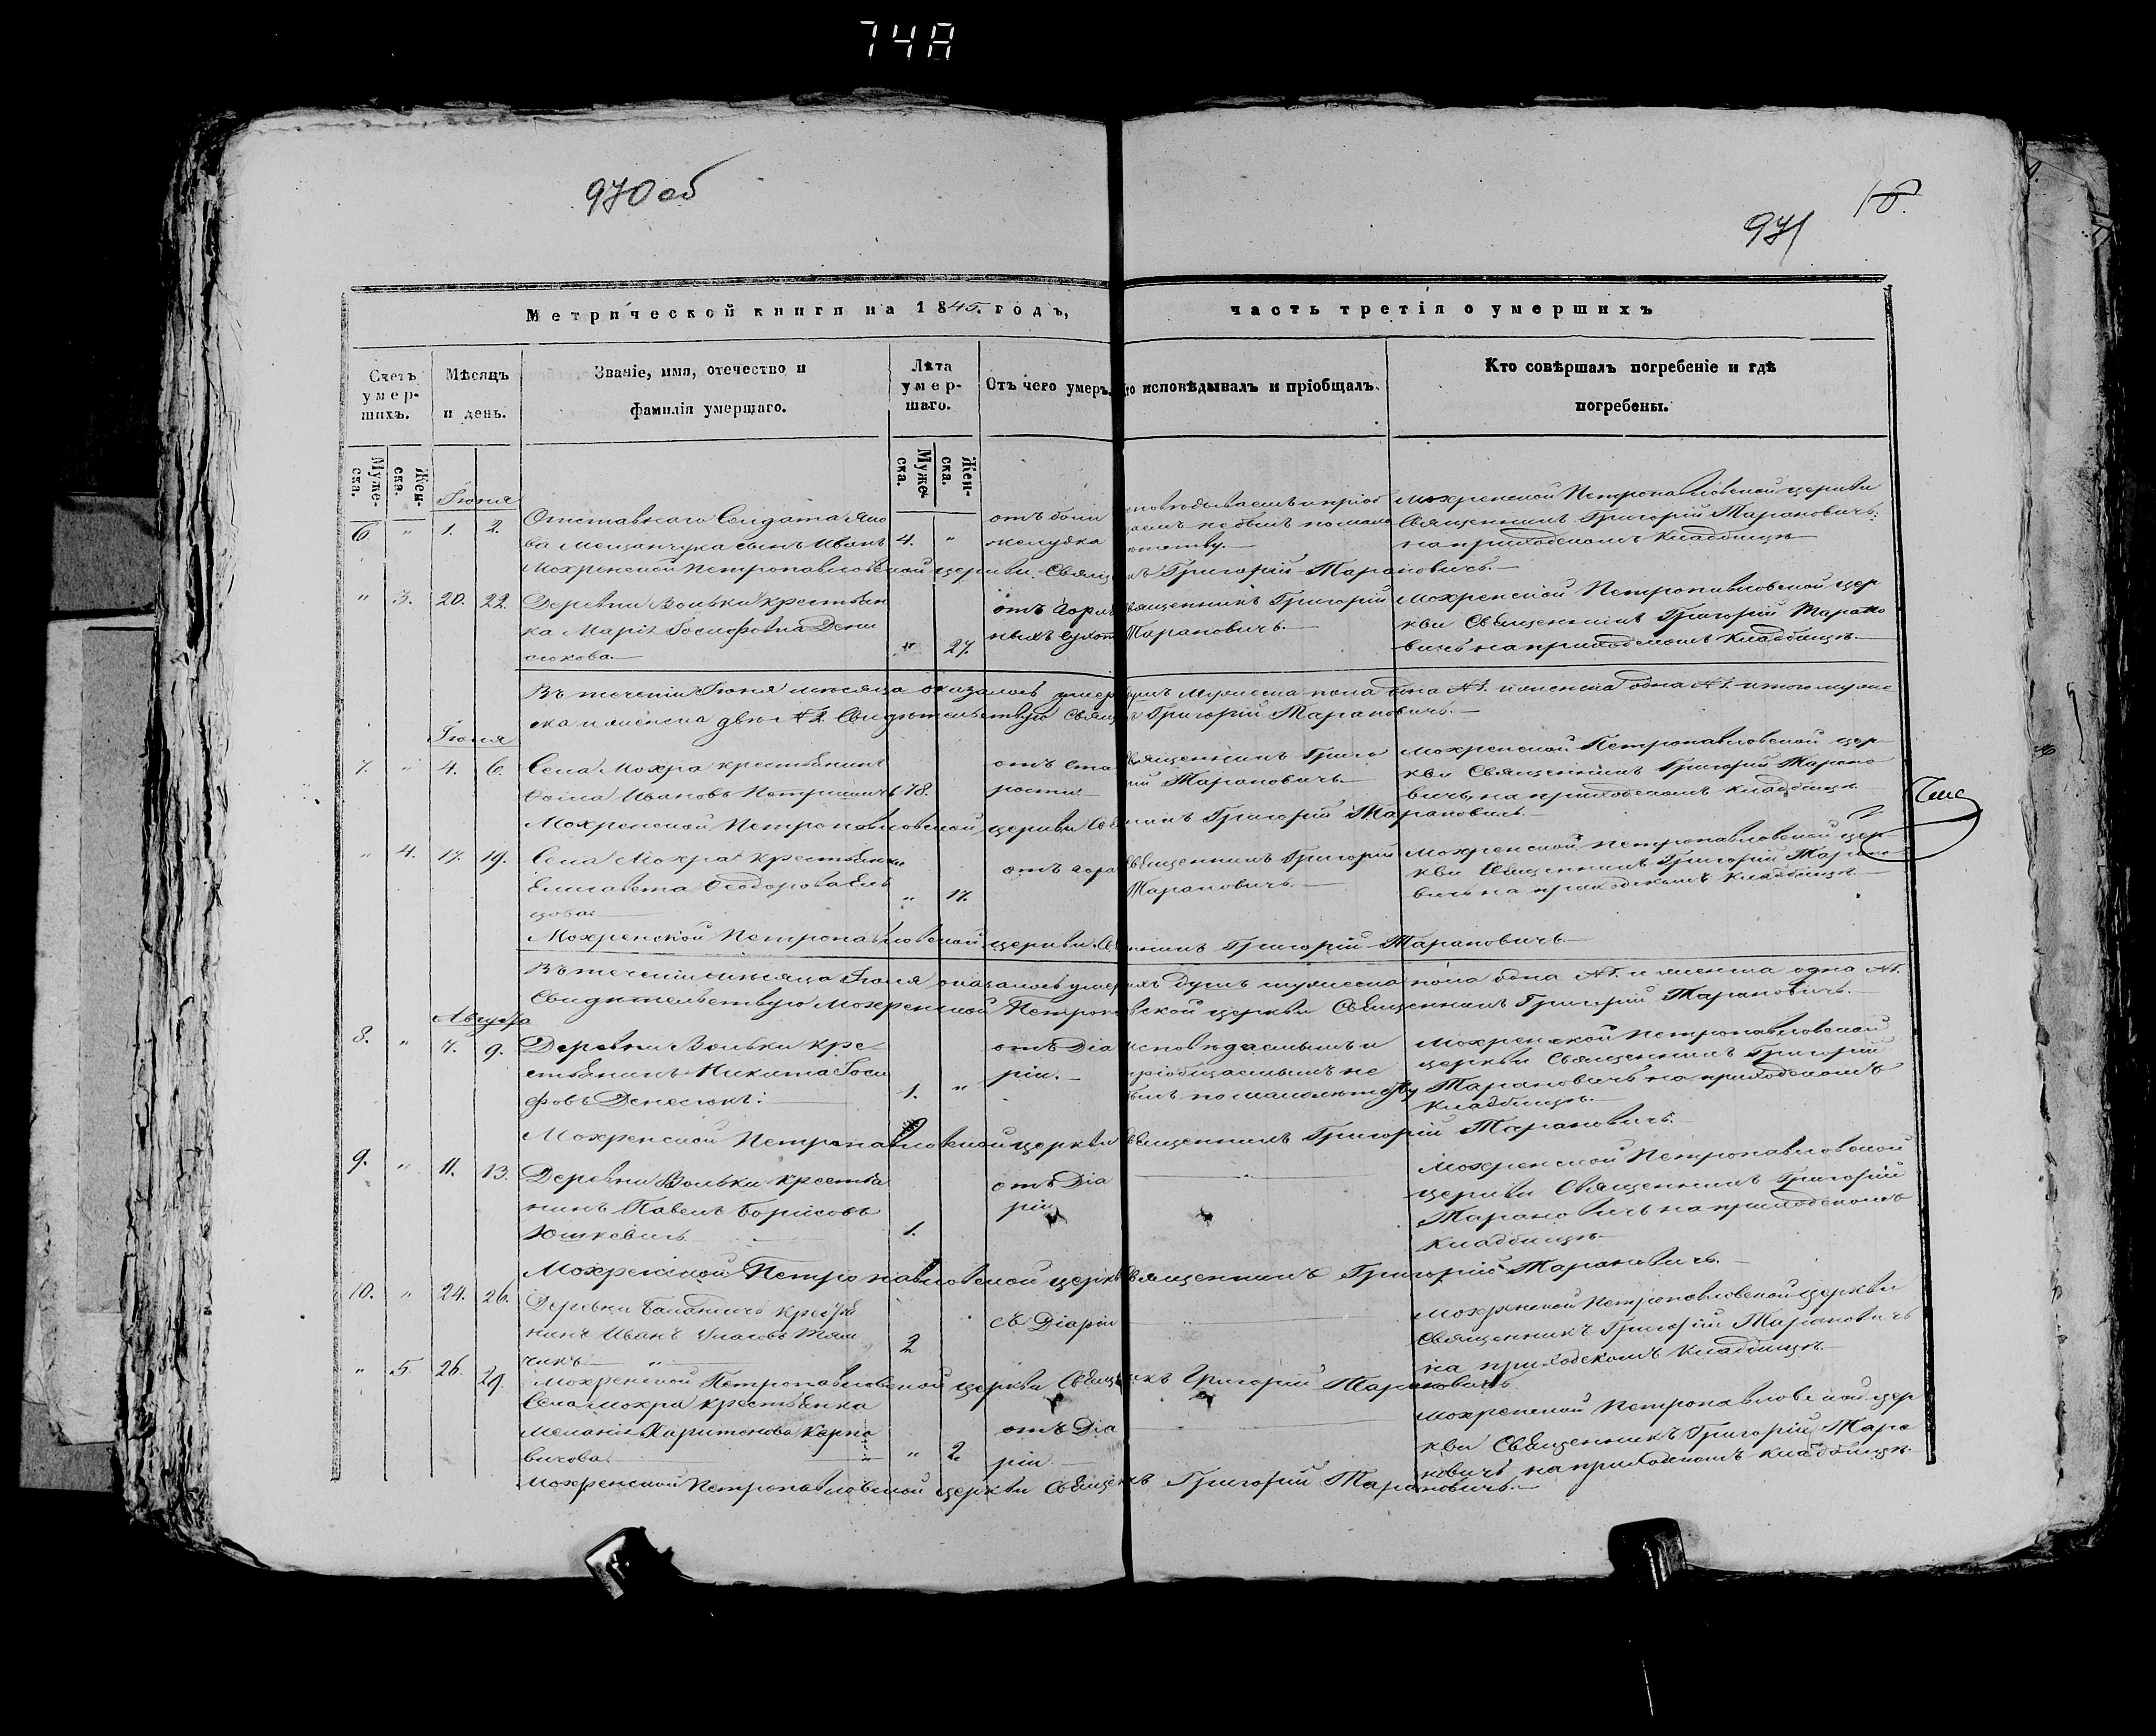 748
970 об
18.
971
Метрической книги на 1845. годъ, часть третія о умершихъ
Счетъ умер-шихъ.
Мѣсяцъ и день.
Званіе, имя, отечество и фамилія умершаго.
Лѣта умер-шаго.
Отъ чего умеръ.
исповѣдывалъ и пріобщалъ.
Кто совѣршалъ погребеніе и гдѣ погребены.
Муже-ска.
Жен-ска.
Муже-ска.
Жен-ска.
6. " 1. 2.
Отставнаго Солдата Яко
ва Мещанчука сынъ Иванъ
4. "
отъ боли
желудка
Мохренской Петропавловской церкви
Священникъ Григорій Тарановичъ
на приходскомъ кладбищѣ
Мохренской Петропавловской церкви Свящ нъ Григорій Тарановичъ.
" 3. 20. 22.
Деревни Вольки крестьян
ка Марія Іосифова Дени
сюкова.
" 27.
Священникъ Григорій
Тарановичъ.
Мохренской Петропавловской цер
кви Священникъ Григорій Тарано
вичъ на приходскомъ кладбищѣ.
Въ теченіи Іюня мѣсяца оказалось умер душъ мужеска пола одна №1. и женска одна №1. итого муже
ска и женска двѣ №2. Свидѣтельствую Свящ Григорій Тарановичъ.
7. " 4. 6.
Села Мохра крестьянинъ
Ѳома Ивановъ
78.
отъ ста
рости
Священникъ Григо
рій Тарановичъ
Мохренской Петропавловской цер
кви Священникъ Григорій Тарано
вичъ, на приходскомъ кладбищѣ
Мохренской Петропавловской церкви Св никъ Григорій Тарановичъ.
" 4. 17. 19.
Села Мохра крестьянка
Елисавета Ѳеодорова
" 17.
Священникъ Григорій
Тарановичъ.
Мохренской Петропавловской цер
кви Священникъ Григорій Тарано
вичъ на приходскомъ кладбищѣ
Мохренской Петропавловской церкви Св нникъ Григорій Тарановичъ
Въ теченіи мѣсяца оказалось умер ихъ душъ мужеска пола одна №1. и женска одна №1.
Свидѣтельствую Мохренской Петропа вской церкви Священникъ Григорій Тарановичъ.
Августа
8. " 7. 9.
Деревни Вольки кре
стьянинъ Никита Іоси
фовъ Денесюкъ.
1. "
отъ Діа
ріи.
исповѣдаемымъ и
пріобщаемымъ не
былъ по малолѣтству
Мохренской Петропавловской
церкви Священникъ Григорій
Тарановичъ на приходскомъ
кладбищѣ.
Мохренской Петропавловской церкви Священникъ Григорій Тарановичъ.
9. " 11. 13.
Деревни Вольки крестья
нинъ Павелъ Борисовъ
Юшкевичъ
1.
отъ Діа
ріи
Мохренской Петропавловской
церкви Священникъ Григорій
Тарановичъ на приходскомъ
кладбищѣ
Мохренской Петропавловской церкв Священникъ Григорій Тарановичъ.
10. " 24. 26.
нинъ Иванъ
2
съ Діаріи
Мохренской Петропавловской церкви
Священникъ Григорій Тарановичъ
на приходскомъ кладбищѣ.
Мохренской Петропавловской церкви Свяще икъ Григорій Тарановичъ
" 5 26. 29.
Села Мохра крестьянка
Меланія Харитонова Карпо
вичова.
" 2.
отъ Діа
ріи
Мохренской Петропавловской цер
кви Священникъ Григорій Тара
новичъ на приходскомъ кладбищѣ.
Мохренской Петропавловской церкви Священ къ Григорій Тарановичъ.